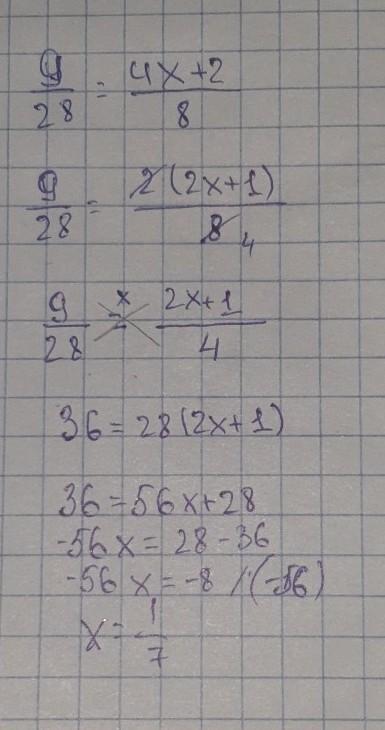 9/28 = 4x+2/8
9/28 = 2(2x+1)/8 4
9/28 = x 2x+1/4
36 = 28(2x+1)
36 = 56x+28
-56x = 28-36
-56x = -8 /:(-56)
x = 1/7